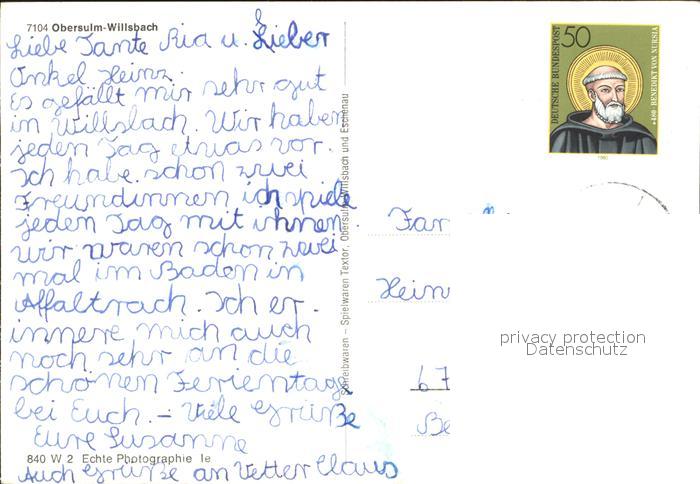 7104 Obersulm-Willsbach
Liebe Tante Ria u. Lieber
Onkel Heinz.
Es gefällt mir sehr gut
in Willsbach. Wir haben
jeden Tag etwas vor.
Ich habe schon zwei
Freundinnen ich spiele
jeden Tag mit ihnen.
wir waren schon zwei
mal im Baden in
Affaltrach. Ich er-
innere mich auch
noch sehr an die
schönen Ferientage
bei Euch. – Viele Grüße
Eure Susanne
840 W 2 Echte Photographie Ie
Auch Grüße an Vetter Claus
Schreibwaren – Spielwaren Textor, Obersulm-Willsbach und Eschenau
DEUTSCHE BUNDESPOST
50
*480 · BENEDIKT VON NURSIA
1980
Fam
Hein
67
Be
privacy protection
Datenschutz